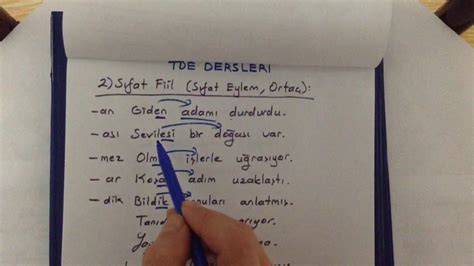 TDE DERSLERİ
2) Sıfat Fiil (Sıfat Eylem, Ortaç):
-an Giden adamı durdurdu.
-ası Sevilesi bir doğası var.
-mez işlerle uğraşıyor.
-ar adım uzaklaştı.
-dik Bildik anlatmış.